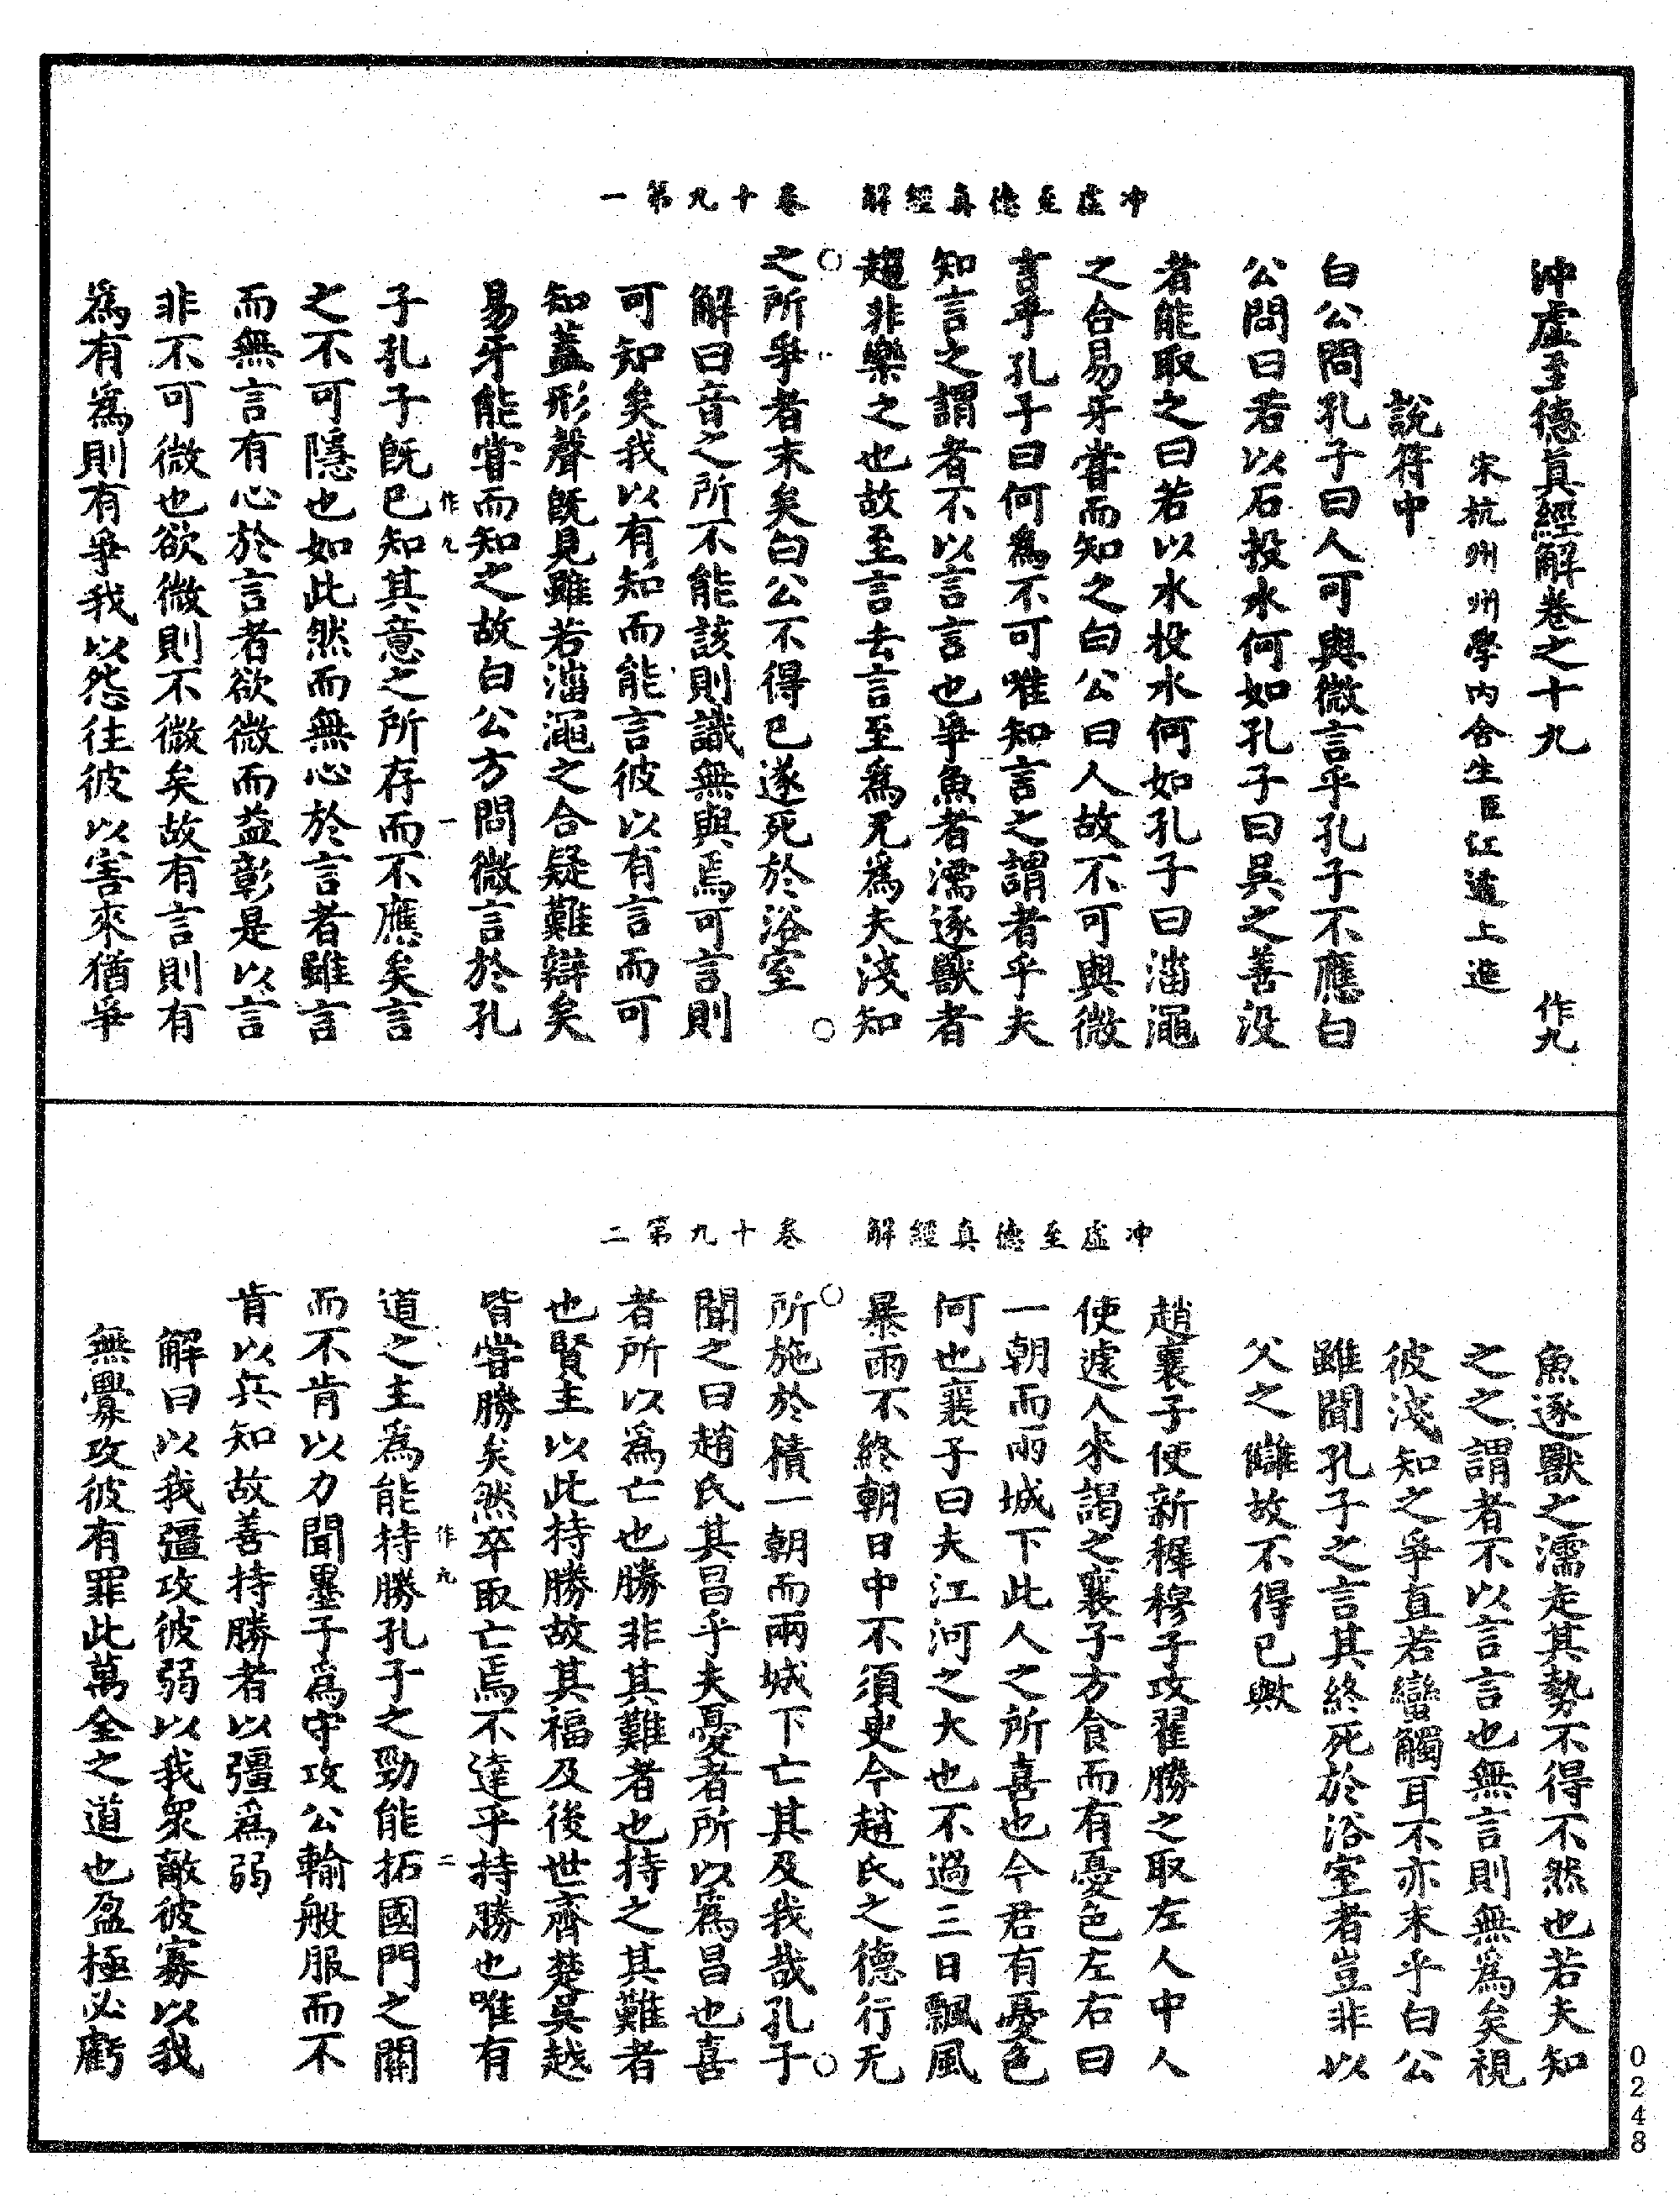 冲虛至德真經解　卷十九第一
沖虛至德眞經解卷之十九　作九
宋杭州州學內舍生臣江遹上進
說符中
白公問孔子曰人可與微言乎孔子不應白
公問曰若以石投水何如孔子曰吳之善沒
者能取之曰若以水投水何如孔子曰淄澠
之合易牙嘗而知之白公曰人故不可與微
言乎孔子曰何爲不可唯知言之謂者乎夫
知言之謂者不以言言也爭魚者濡逐獸者
趨非樂之也故至言去言至爲无爲夫淺知
之所爭者末矣白公不得已遂死於浴室
解曰音之所不能該則識無與焉可言則
可知矣我以有知而能言彼以有言而可
知蓋形聲旣見雖若淄澠之合疑難辯矣
易牙能嘗而知之故白公方問微言於孔
作九　一
子孔子旣已知其意之所存而不應矣言
之不可隱也如此然而無心於言者雖言
而無言有心於言者欲微而益彰是以言
非不可微也欲微則不微矣故有言則有
爲有爲則有爭我以怨往彼以害來猶爭
冲虛至德真經解　卷十九第二
魚逐獸之濡走其勢不得不然也若夫知
之之謂者不以言言也無言則無為矣視
彼淺知之爭直若蠻觸耳不亦末乎白公
雖聞孔子之言其終死於浴室者豈非以
父之讎故不得已歟
趙襄子使新穉穆子攻翟勝之取左人中人
使遽人來謁之襄子方食而有憂色左右曰
一朝而兩城下此人之所喜也今君有憂色
何也襄子曰夫江河之大也不過三日飄風
暴雨不終朝日中不須臾今趙氏之德行无
所施於積一朝而兩城下亡其及我哉孔子
聞之曰趙氏其昌乎夫憂者所以為昌也喜
者所以為亡也勝非其難者也持之其難者
也賢主以此持勝故其福及後世齊楚吳越
皆嘗勝矣然卒取亡焉不達乎持勝也唯有
作九　二
道之主為能持勝孔子之勁能拓國門之關
而不肯以力聞墨子爲守攻公輸般服而不
肯以兵知故善持勝者以彊爲弱
解曰以我彊攻彼弱以我衆敵彼寡以我
無釁攻彼有罪此萬全之道也盈極必虧
0248